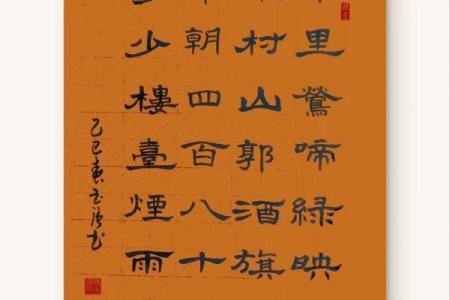 里鶯啼綠映
村山郭酒旗
朝四百八十
少樓臺煙雨
乙巳春玉书